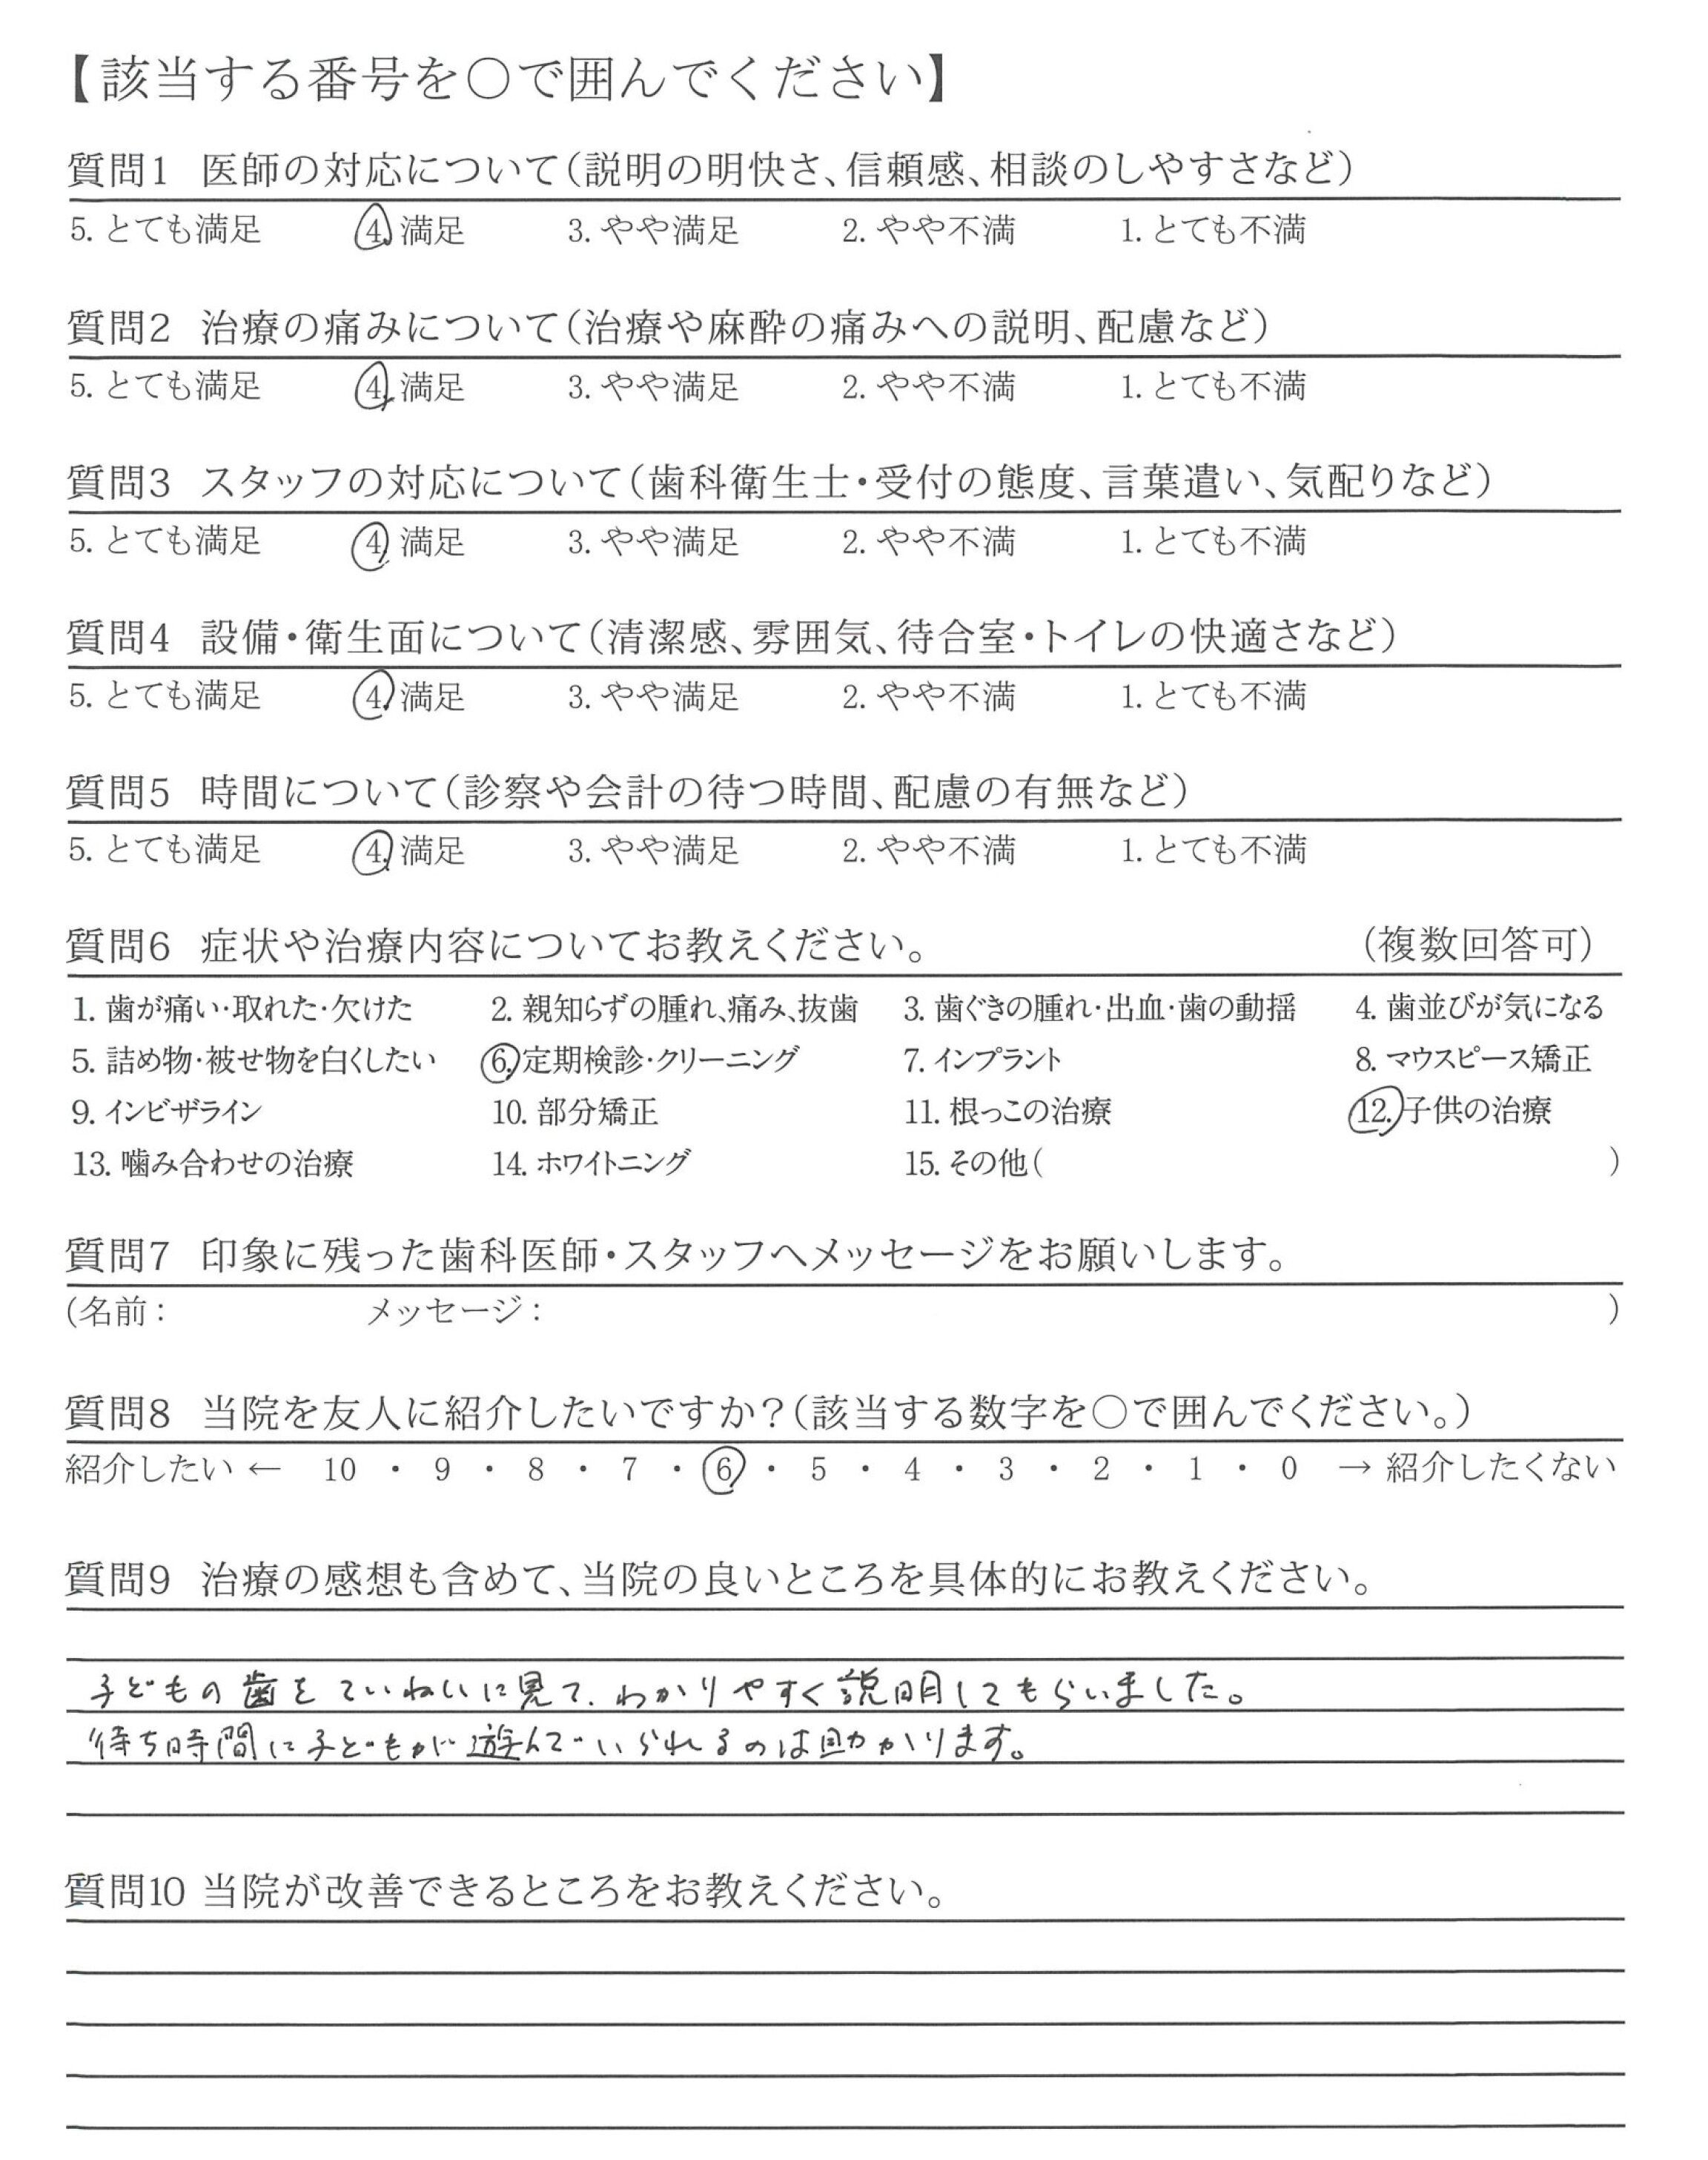 【該当する番号を○で囲んでください】
質問1 医師の対応について(説明の明快さ、信頼感、相談のしやすさなど)
5. とても満足 4. 満足 3. やや満足 2. やや不満 1. とても不満
質問2 治療の痛みについて(治療や麻酔の痛みへの説明、配慮など)
5. とても満足 4. 満足 3. やや満足 2. やや不満 1. とても不満
質問3 スタッフの対応について(歯科衛生士・受付の態度、言葉遣い、気配りなど)
5. とても満足 4. 満足 3. やや満足 2. やや不満 1. とても不満
質問4 設備・衛生面について(清潔感、雰囲気、待合室・トイレの快適さなど)
5. とても満足 4. 満足 3. やや満足 2. やや不満 1. とても不満
質問5 時間について(診察や会計の待つ時間、配慮の有無など)
5. とても満足 4. 満足 3. やや満足 2. やや不満 1. とても不満
質問6 症状や治療内容についてお教えください。 (複数回答可)
1. 歯が痛い・取れた・欠けた 2. 親知らずの腫れ、痛み、抜歯 3. 歯ぐきの腫れ・出血・歯の動揺 4. 歯並びが気になる
5. 詰め物・被せ物を白くしたい 6. 定期検診・クリーニング 7. インプラント 8. マウスピース矯正
9. インビザライン 10. 部分矯正 11. 根っこの治療 12. 子供の治療
13. 噛み合わせの治療 14. ホワイトニング 15. その他( )
質問7 印象に残った歯科医師・スタッフへメッセージをお願いします。
(名前: メッセージ: )
質問8 当院を友人に紹介したいですか?(該当する数字を○で囲んでください。)
紹介したい ← 10 ・ 9 ・ 8 ・ 7 ・ 6 ・ 5 ・ 4 ・ 3 ・ 2 ・ 1 ・ 0 → 紹介したくない
質問9 治療の感想も含めて、当院の良いところを具体的にお教えください。
子どもの歯をていねいに見て、わかりやすく説明してもらいました。
待ち時間に子どもが遊んでいられるのは助かります。
質問10 当院が改善できるところをお教えください。